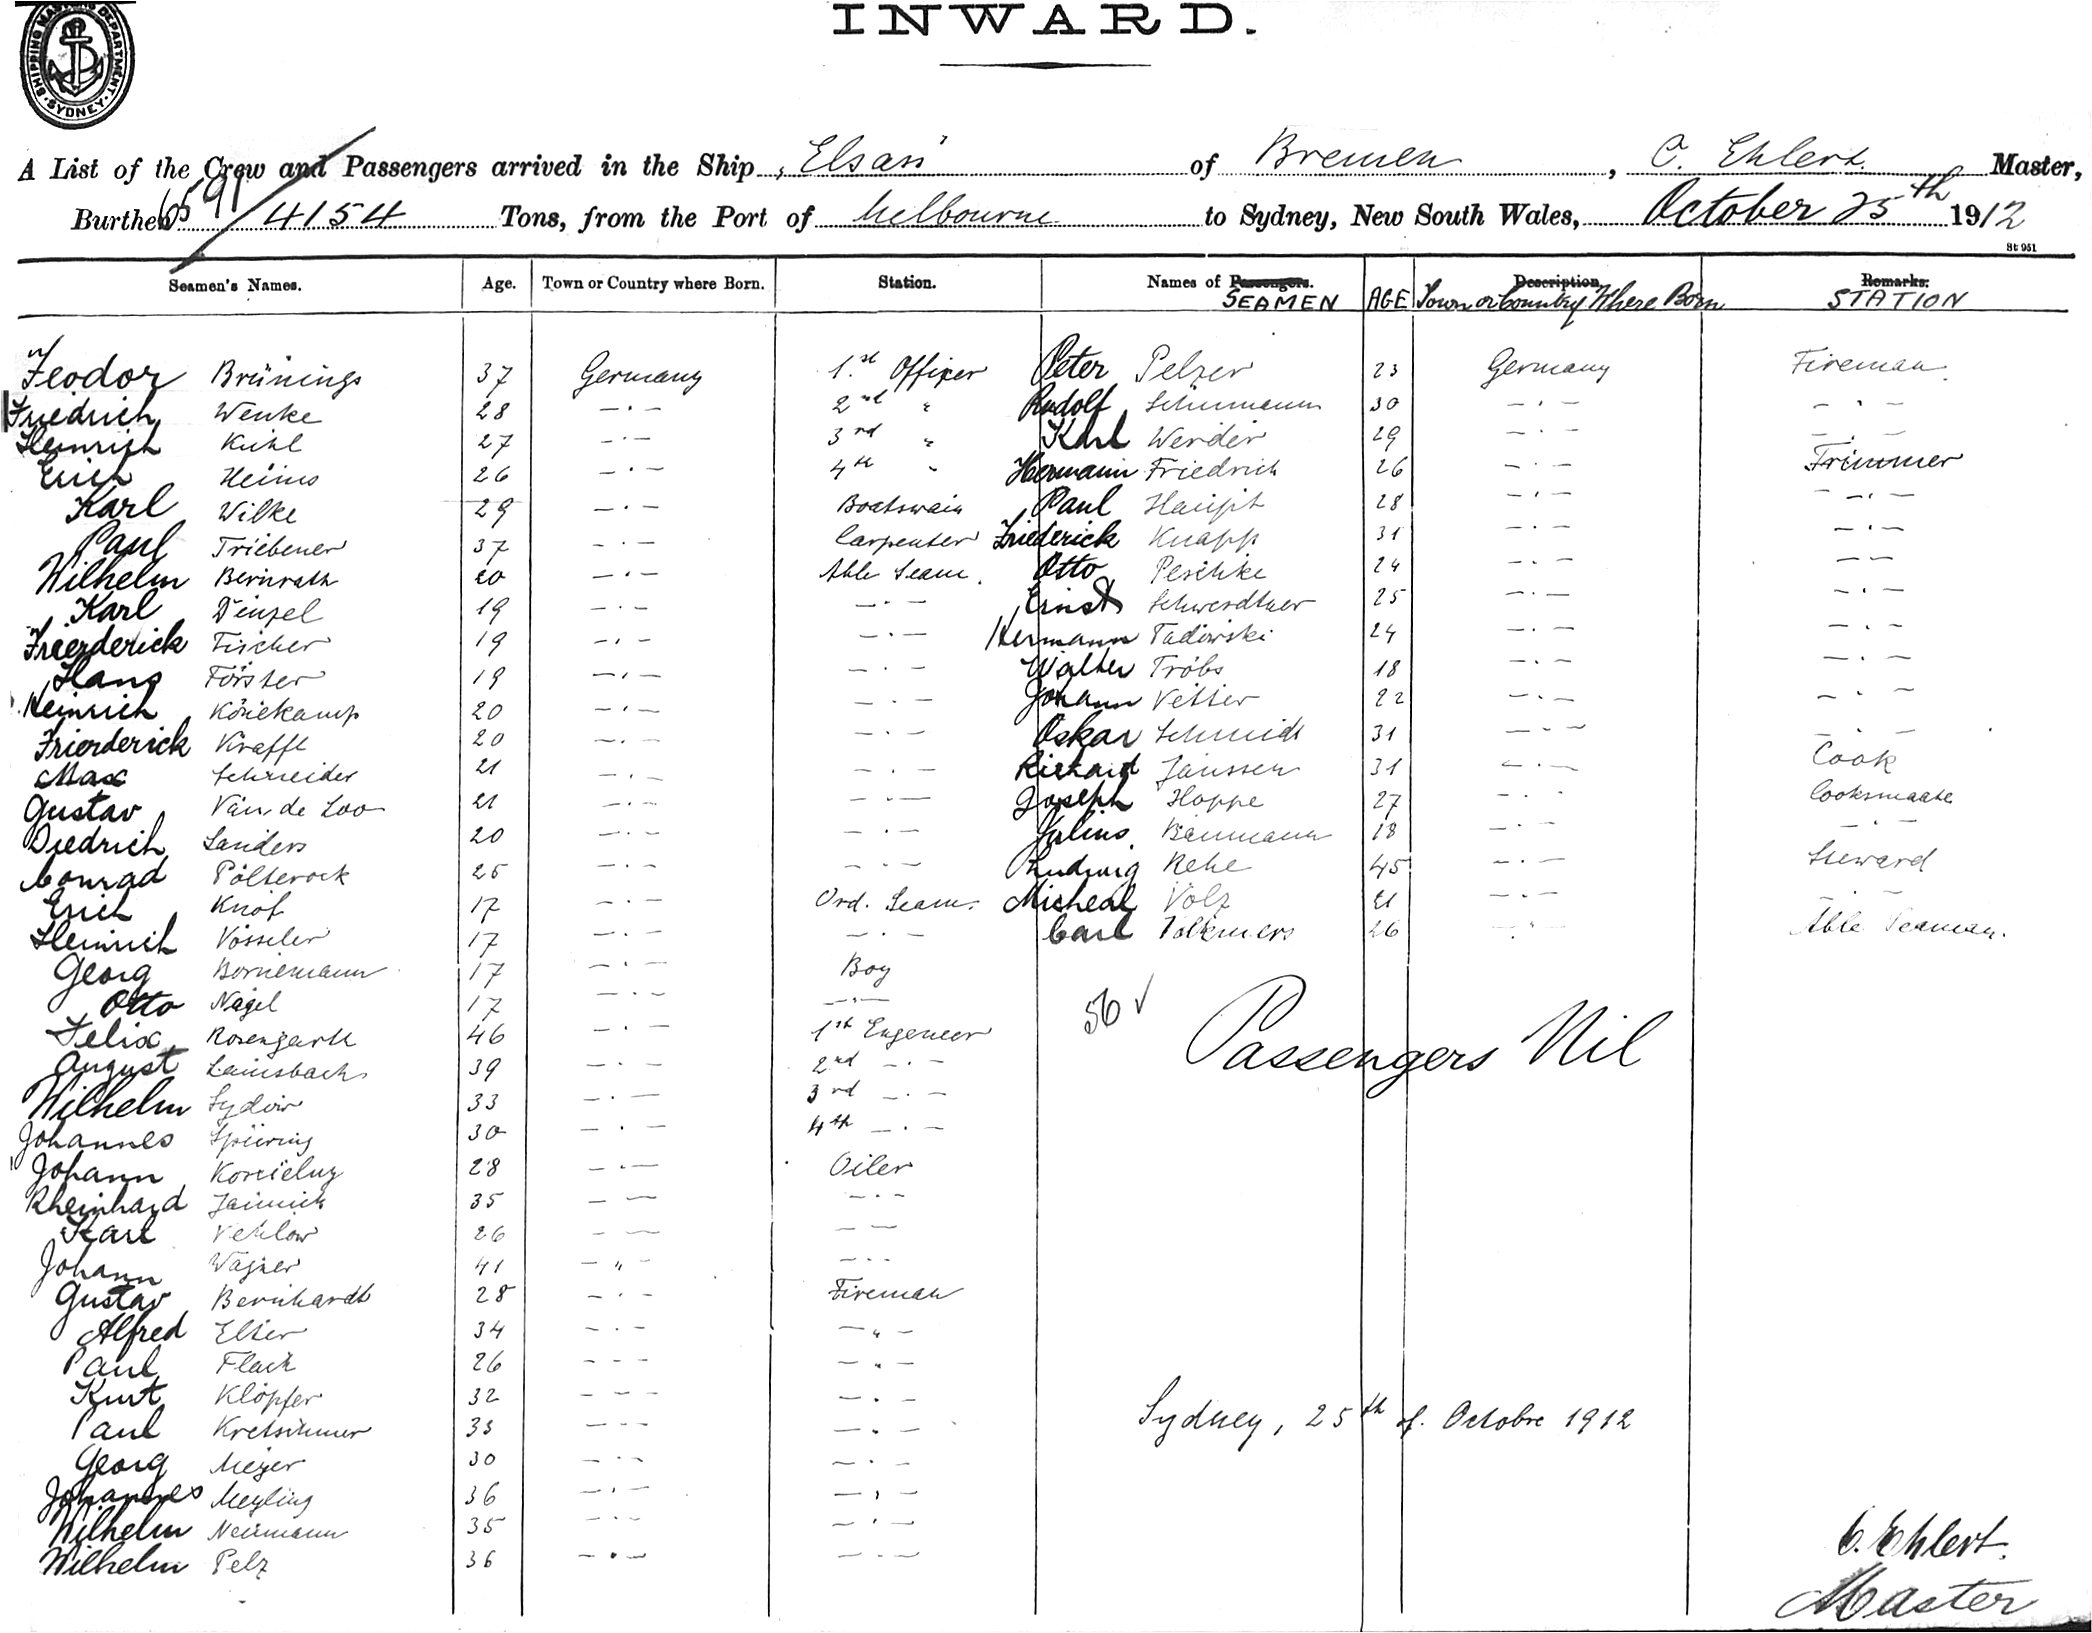 INWARD.
SHIPPING MASTERS DEPARTMENT SYDNEY
A List of the Crew and Passengers arrived in the Ship „Elsass“ of Bremen, C. Ehlert Master,
Burthen 6591/4154 Tons, from the Port of Melbourne to Sydney, New South Wales, October 25th 1912
St 951
Seamen's Names. Age. Town or Country where Born. Station. Names of Passengers. SEAMEN AGE Description Town or Country Where Born Remarks: STATION
Feodor Brünings 37 Germany 1.st Officer Peter Pelzer 23 Germany Fireman
Friedrich Wenke 28 — · — 2nd " Rudolf Schümann 30 — · — — · —
Heinrich Kühl 27 — · — 3rd " Karl Werder 29 — · — — · —
Erich Heims 26 — · — 4th " Hermann Friedrich 26 — · — Trimmer
Karl Wilke 29 — · — Boatswain Paul Haupt 28 — · — — · —
Paul Triebener 37 — · — Carpenter Friederick Knapp 31 — · — — · —
Wilhelm Bernrath 20 — · — Able Seam. Otto Peschke 24 — · — — —
Karl Dinzel 19 — · — — · — Ernst Schwerdtner 25 — · — — · —
Freerderick Fischer 19 — · — — · — Hermann Tadowski 24 — · — — · —
Hans Förster 19 — · — — · — Walter Tröbs 18 — · — — · —
Heinrich Köriekamp 20 — · — — · — Johann Vetter 22 — · — — · —
Frierderick Krafft 20 — · — — · — Oskar Schmidt 31 — · — — · —
Max Schneider 21 — · — — · — Richard Janssen 31 — · — Cook
Gustav Van de Loo 21 — · — — · — Joseph Hoppe 27 — · — Cooksmaate
Diedrich Sanders 20 — · — — · — Julius Baumann 18 — · — — · —
Conrad Pölterock 25 — · — — · — Ludwig Rehe 45 — · — Steward
Erich Knof 17 — · — Ord. Seam. Micheal Volz 21 — · — — · —
Heinrich Vosseler 17 — · — — · — Carl Volkmers 26 — · — Able Seaman.
Georg Bornemann 17 — · — Boy
Otto Nagel 17 — · — — · —
56 ✓ Passengers Nil
Felix Rosengarth 46 — · — 1st Engeneer
August Lainsbach 39 — · — 2nd — · —
Wilhelm Sydow 33 — · — 3rd — · —
Johannes Spiering 30 — · — 4th — · —
Johann 28 — · — Oiler
Rheinhard Jannick 35 — — — · —
Karl Vehlow 26 — — — —
Johann Wagner 41 — " — — · -
Gustav Bernhardt 28 — · — Fireman
Alfred Elster 34 — · — — " —
Paul Flach 26 — - — — " —
Kurt Klöpfer 32 — - — — · —
Paul Kretschmer 33 — - — — · —
Georg Meyer 30 — · — — · —
Johannes Meyling 36 — · — — · —
Wilhelm Neumann 35 — · — — · —
Wilhelm Pelz 36 — · — — · —
Sydney, 25th of. Octobre 1912
C. Ehlert.
Master